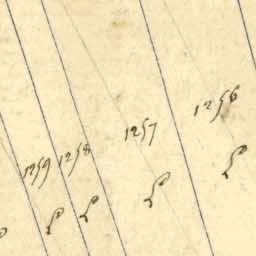 1259 1258 1257 1256